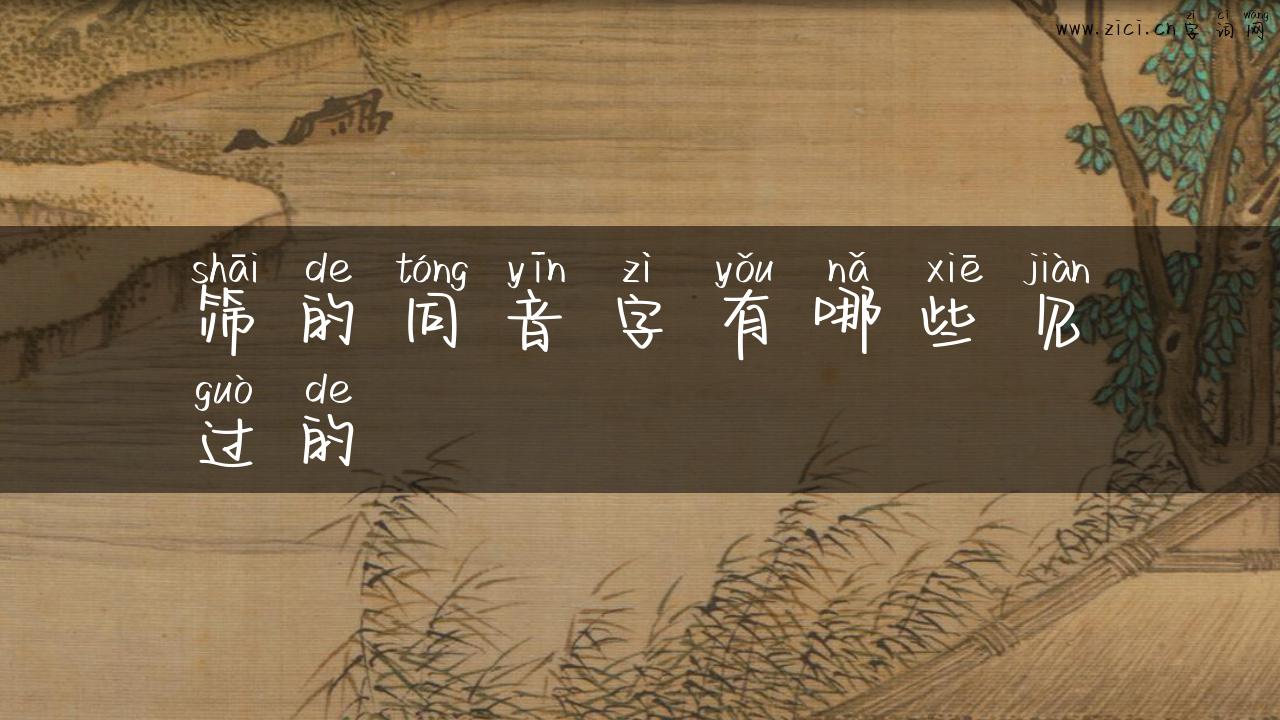 zì cí wǎng
www.zici.cn 字词网
shāi de tóng yīn zì yǒu nǎ xiē jiàn
筛的同音字有哪些见
guò de
过的